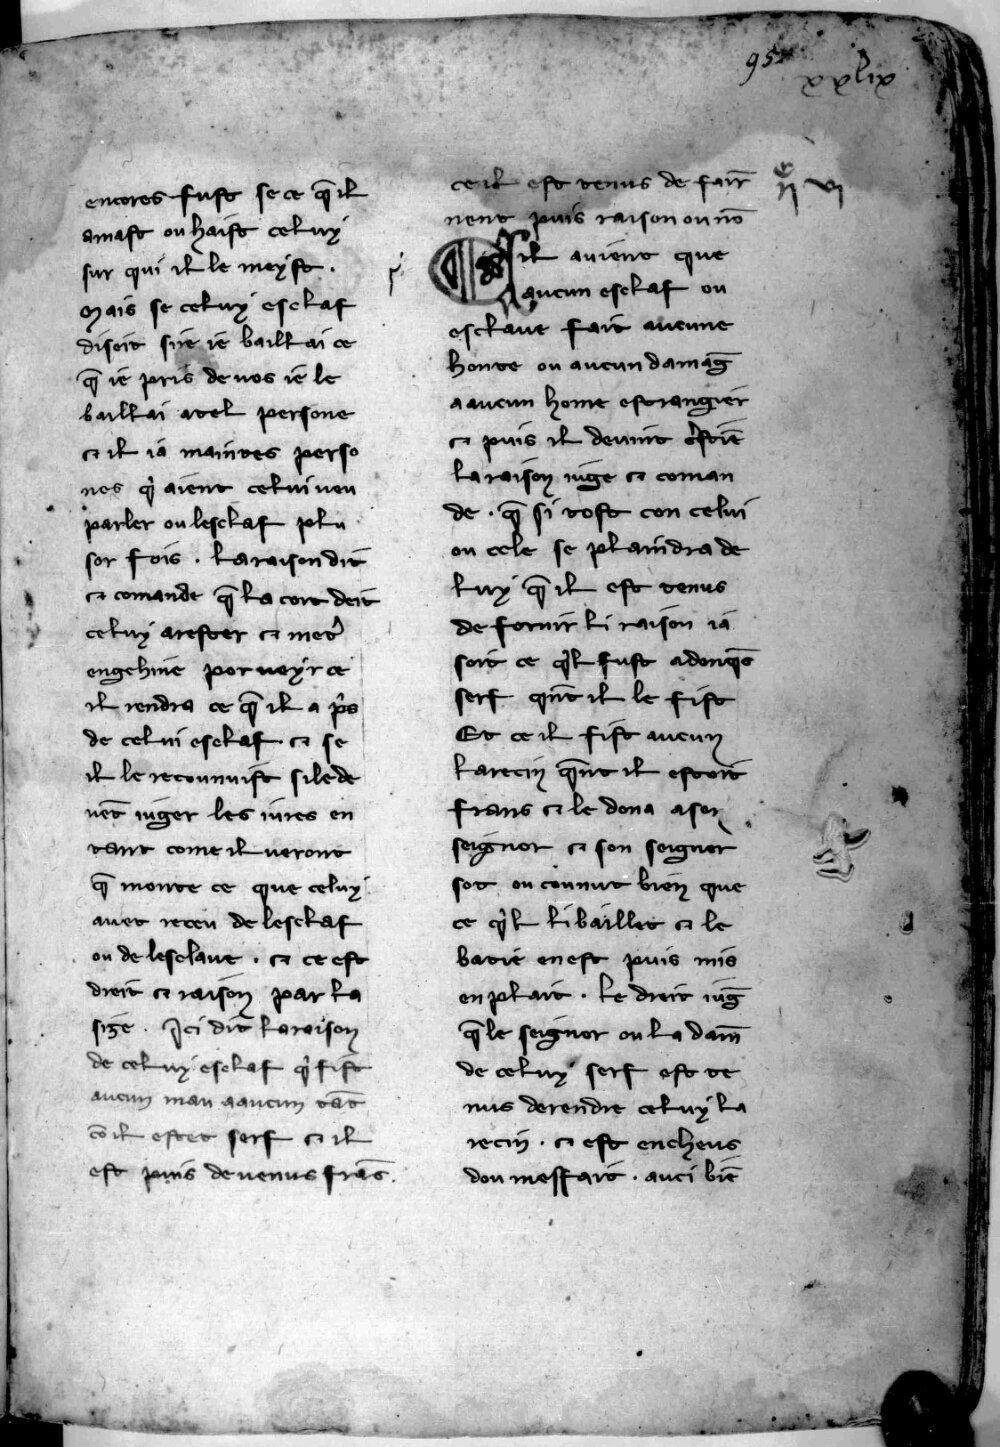 95
xxlix
encores fust se ce q̄ il
amast ou haist celuy
sur qui il le meyst .
Mais se celuy esclaf
disoit sire ie baillai ce
q̄ ie pris de vos ie le
baillai a tel persone
⁊ il ia maintes perso
nes qͥ aient celui veu
parler ou lesclaf plu
sor fois . La raison dit
⁊ comande q̄ la cort deit
celuy arester ⁊ metr̓
engehine por veyr ce
il rendra ce q̄ il a p̓s
de celui esclaf ⁊ se
il le recounuist si le de
vet̄ iuger les iures en
tant come il veront
q̄ monte ce que celuy
avet receu de lesclaf
ou de lesclave . ⁊ ce est
dreit ⁊ raison par la
size . Ici dit la raison
de celuy esclaf qͥ fist
aucun mau a aucun tāt
cō il estet serf ⁊ il
est puis devenus frās .
ce il est tenus de fair̄
nent puis raison ou nō
Sil avient que
aucun esclaf ou
esclave fait aucune
honte ou aucun damaḡ
a aucun home estrangier
⁊ puis il devint c̓stiē
la raison iuge ⁊ coman
de . q̄ si tost con celui
ou cele se plaindra de
luy q̄ il est tenus
de fornir li raison ia
soit ce qͥl fust adonq̄s
serf qn̄t il le fist
Et ce il fist aucun
larecin qn̄t il estoit
frans ⁊ le dona a son
seignor ⁊ son seignor
sot ou counut bien que
ce qͥl li baillet ⁊ le
batie en est puis mis
en plait . le dreit iuḡ
q̄ le seignor ou la dam̄
de celuy serf est te
nus de rendre celuy la
recin . ⁊ est encheus
dou meffait . auci biē